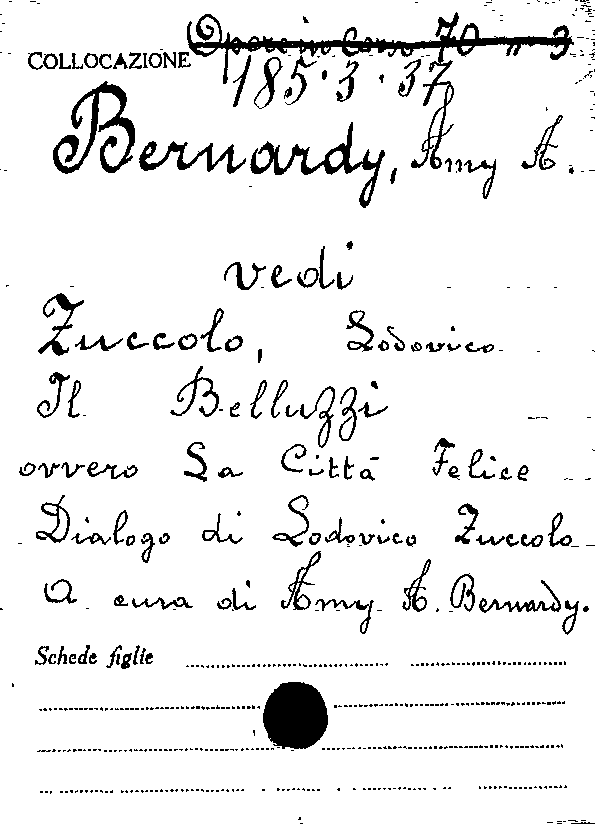 COLLOCAZIONE Opere in Cons 70 " 3
185.3.37
Bernardy, Amy A.
vedi
Zuccolo, Lodovico
Il Belluzzi
ovvero La Città Felice
Dialogo di Lodovico Zuccolo
A cura di Amy A. Bernardy.
Schede figlie